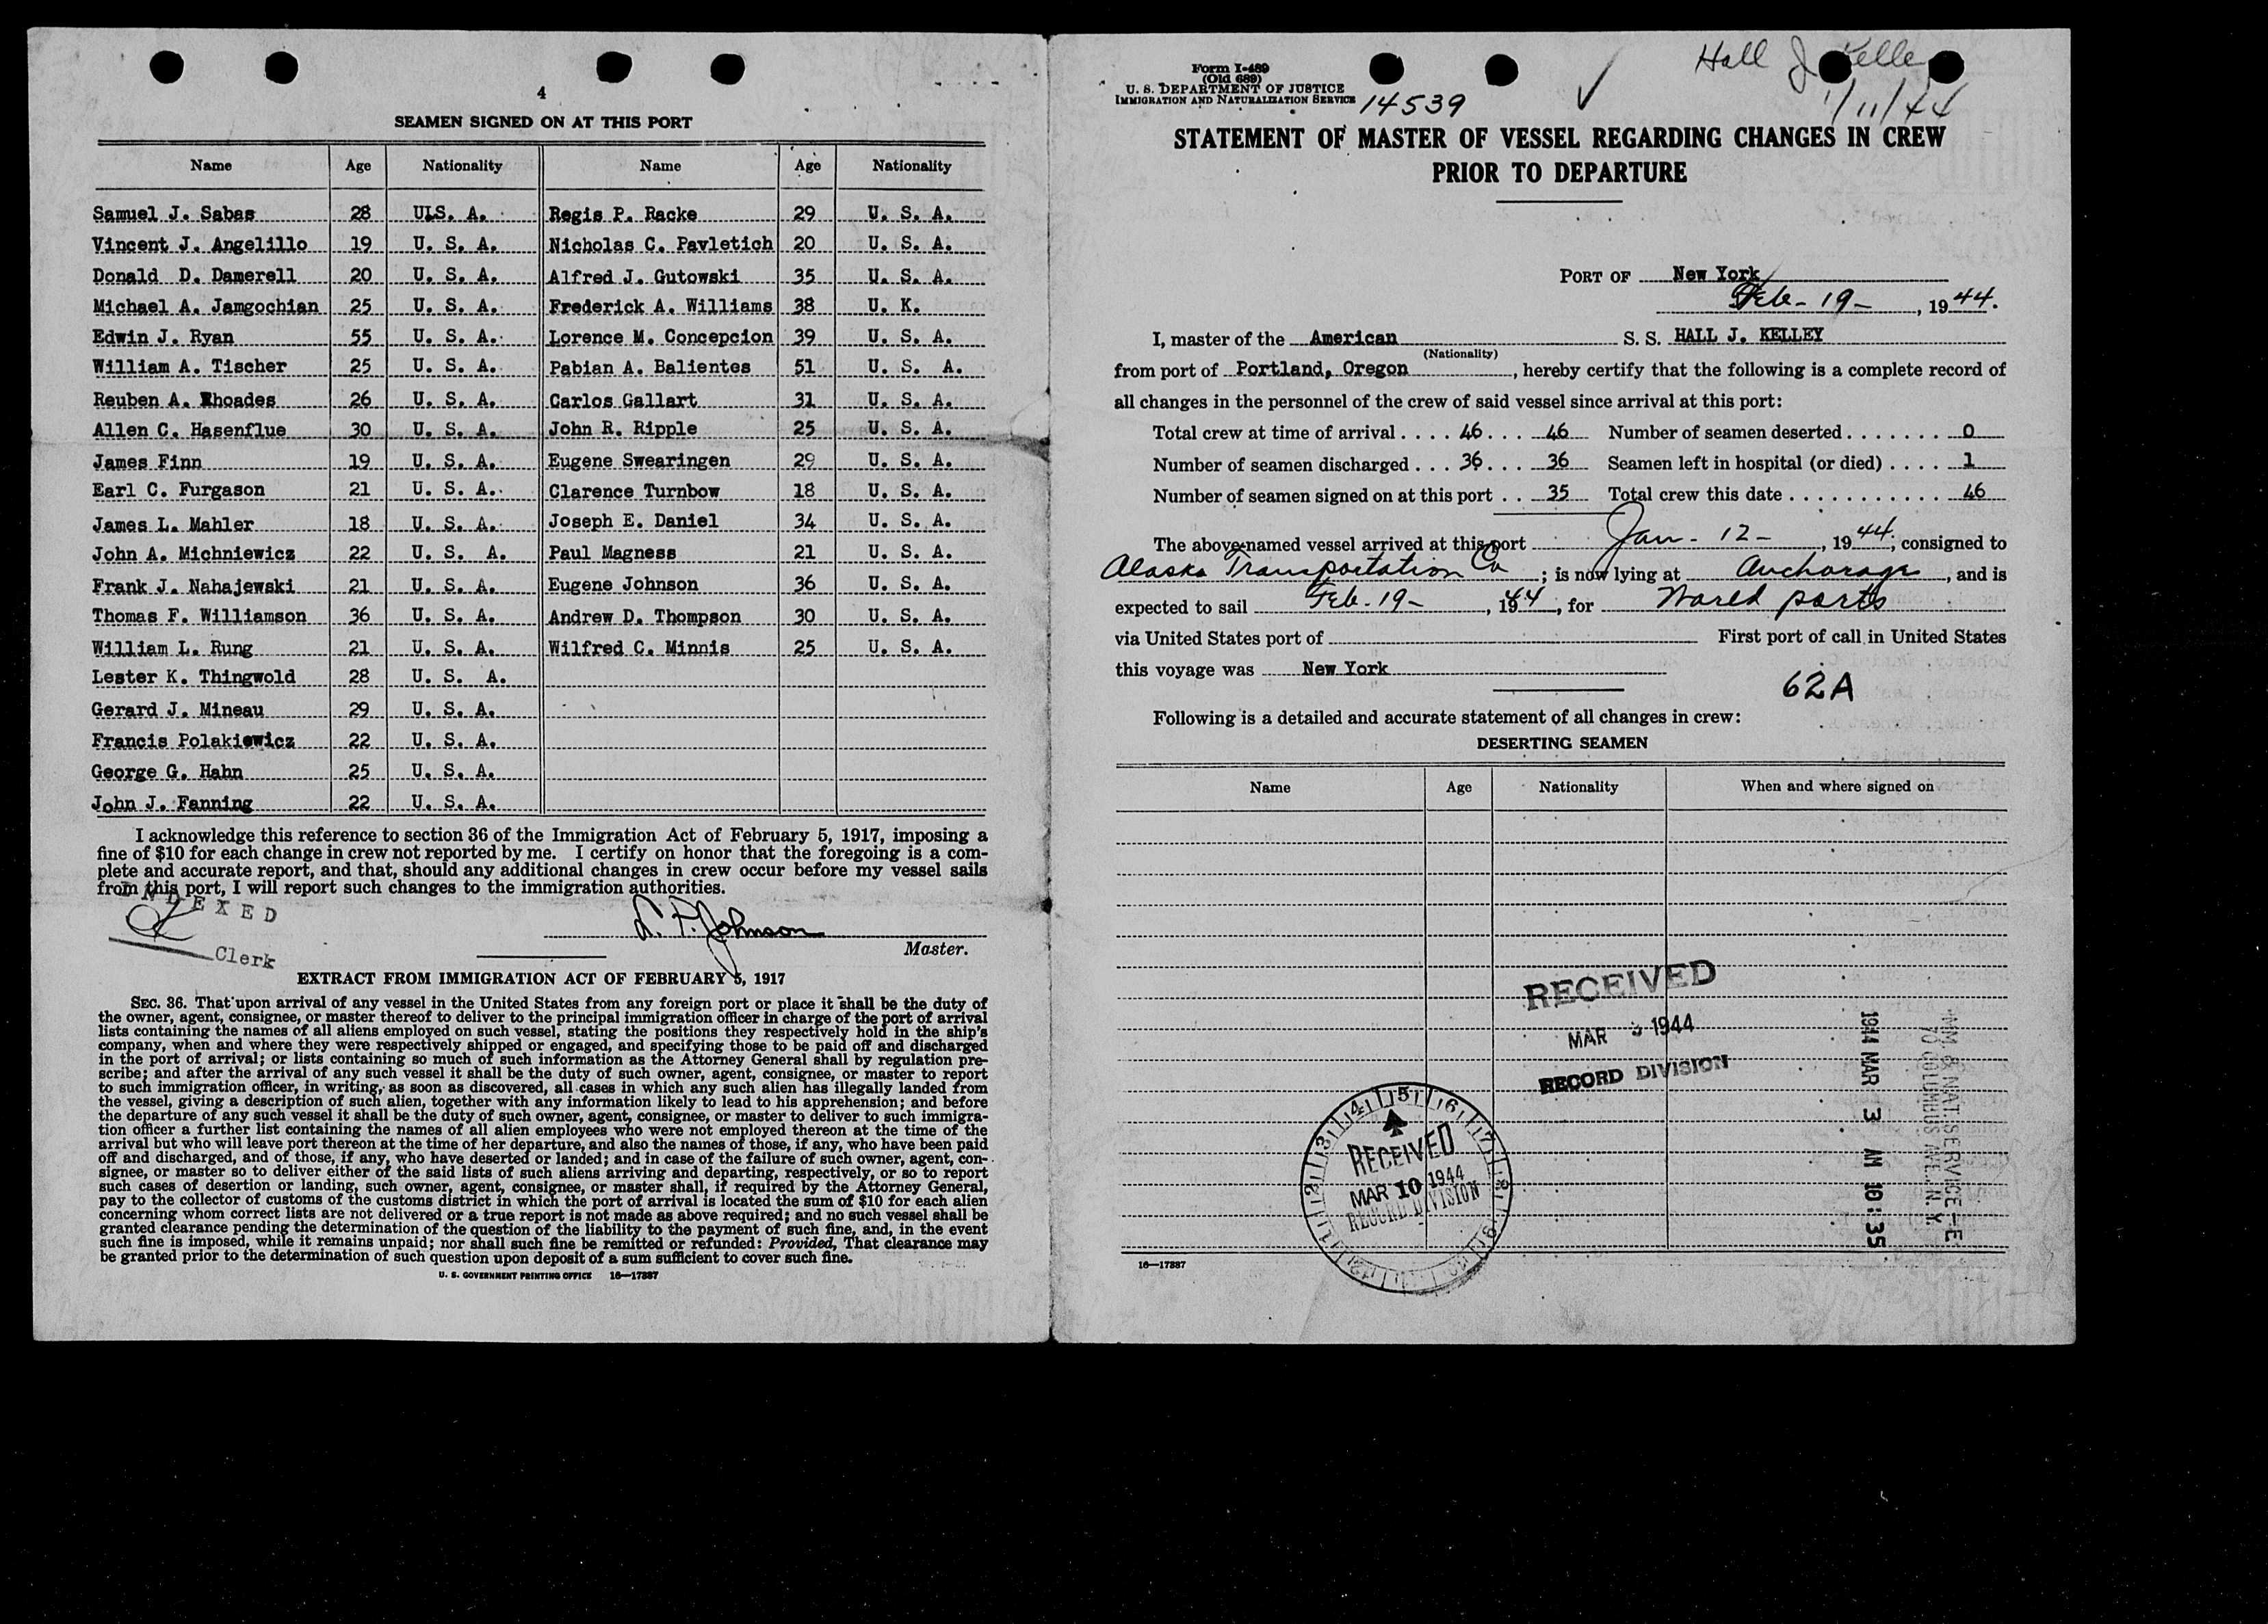 4
SEAMEN SIGNED ON AT THIS PORT
Name Age Nationality Name Age Nationality
Samuel J. Sabas 28 UIS. A. Regis P. Racke 29 U. S. A.
Vincent J. Angelillo 19 U. S. A. Nicholas C. Pavletich 20 U. S. A.
Donald D. Damerell 20 U. S. A. Alfred J. Gutowski 35 U. S. A.
Michael A. Jamgochian 25 U. S. A. Frederick A. Williams 38 U. K.
Edwin J. Ryan 55 U. S. A. Lorence M. Concepcion 39 U. S. A.
William A. Tischer 25 U. S. A. Pabian A. Balientes 51 U. S. A.
Reuben A. Rhoades 26 U. S. A. Carlos Gallart 31 U. S. A.
Allen C. Hasenflue 30 U. S. A. John R. Ripple 25 U. S. A.
James Finn 19 U. S. A. Eugene Swearingen 29 U. S. A.
Earl C. Furgason 21 U. S. A. Clarence Turnbow 18 U. S. A.
James L. Mahler 18 U. S. A. Joseph E. Daniel 34 U. S. A.
John A. Michniewicz 22 U. S. A. Paul Magness 21 U. S. A.
Frank J. Nahajewski 21 U. S. A. Eugene Johnson 36 U. S. A.
Thomas F. Williamson 36 U. S. A. Andrew D. Thompson 30 U. S. A.
William L. Rung 21 U. S. A. Wilfred C. Minnis 25 U. S. A.
Lester K. Thingwold 28 U. S. A.
Gerard J. Mineau 29 U. S. A.
Francis Polakiewicz 22 U. S. A.
George G. Hahn 25 U. S. A.
John J. Fanning 22 U. S. A.
I acknowledge this reference to section 36 of the Immigration Act of February 5, 1917, imposing a
fine of $10 for each change in crew not reported by me. I certify on honor that the foregoing is a com-
plete and accurate report, and that, should any additional changes in crew occur before my vessel sails
from this port, I will report such changes to the immigration authorities.
INDEXED
Clerk
L. P. Johnson
Master.
EXTRACT FROM IMMIGRATION ACT OF FEBRUARY 5, 1917
SEC. 36. That upon arrival of any vessel in the United States from any foreign port or place it shall be the duty of
the owner, agent, consignee, or master thereof to deliver to the principal immigration officer in charge of the port of arrival
lists containing the names of all aliens employed on such vessel, stating the positions they respectively hold in the ship's
company, when and where they were respectively shipped or engaged, and specifying those to be paid off and discharged
in the port of arrival; or lists containing so much of such information as the Attorney General shall by regulation pre-
scribe; and after the arrival of any such vessel it shall be the duty of such owner, agent, consignee, or master to report
to such immigration officer, in writing, as soon as discovered, all cases in which any such alien has illegally landed from
the vessel, giving a description of such alien, together with any information likely to lead to his apprehension; and before
the departure of any such vessel it shall be the duty of such owner, agent, consignee, or master to deliver to such immigra-
tion officer a further list containing the names of all alien employees who were not employed thereon at the time of the
arrival but who will leave port thereon at the time of her departure, and also the names of those, if any, who have been paid
off and discharged, and of those, if any, who have deserted or landed; and in case of the failure of such owner, agent, con-
signee, or master so to deliver either of the said lists of such aliens arriving and departing, respectively, or so to report
such cases of desertion or landing, such owner, agent, consignee, or master shall, if required by the Attorney General,
pay to the collector of customs of the customs district in which the port of arrival is located the sum of $10 for each alien
concerning whom correct lists are not delivered or a true report is not made as above required; and no such vessel shall be
granted clearance pending the determination of the question of the liability to the payment of such fine, and, in the event
such fine is imposed, while it remains unpaid; nor shall such fine be remitted or refunded: Provided, That clearance may
be granted prior to the determination of such question upon deposit of a sum sufficient to cover such fine.
U. S. GOVERNMENT PRINTING OFFICE 16—17887
Form I-489
(Old 689)
U. S. DEPARTMENT OF JUSTICE
IMMIGRATION AND NATURALIZATION SERVICE
14539
Hall J Kelley
1/11/44
STATEMENT OF MASTER OF VESSEL REGARDING CHANGES IN CREW
PRIOR TO DEPARTURE
PORT OF New York
Feb - 19 - , 1944.
I, master of the American S. S. HALL J. KELLEY
(Nationality)
from port of Portland, Oregon , hereby certify that the following is a complete record of
all changes in the personnel of the crew of said vessel since arrival at this port:
Total crew at time of arrival . . . . 46 . . . 46 Number of seamen deserted . . . . . . . 0
Number of seamen discharged . . . 36 . . . 36 Seamen left in hospital (or died) . . . . 1
Number of seamen signed on at this port . . 35 Total crew this date . . . . . . . . . . . . 46
The above-named vessel arrived at this port Jan - 12 - , 1944; consigned to
Alaska Transportation Co ; is now lying at Anchorage , and is
expected to sail Feb - 19 - , 1944 , for World ports
via United States port of First port of call in United States
this voyage was New York
62A
Following is a detailed and accurate statement of all changes in crew:
DESERTING SEAMEN
Name Age Nationality When and where signed on
RECEIVED
MAR 3 1944
RECORD DIVISION
RECEIVED
MAR 10 1944
RECORD DIVISION
IMM. & NAT. SERVICE
70 COLUMBUS AVE., N. Y.
1944 MAR 3 AM 10:35
16—17887